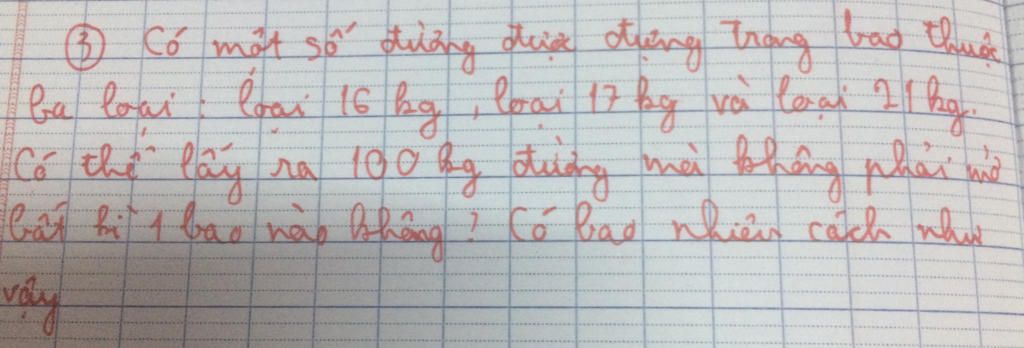 ③ Có một số đường được đựng trong bao thuộc
ba loại : loại 16 kg , loại 17 kg và loại 21 kg.
Có thể lấy ra 100 kg đường mà không phải mở
bất kì 1 bao nào không ? Có bao nhiêu cách như
vậy